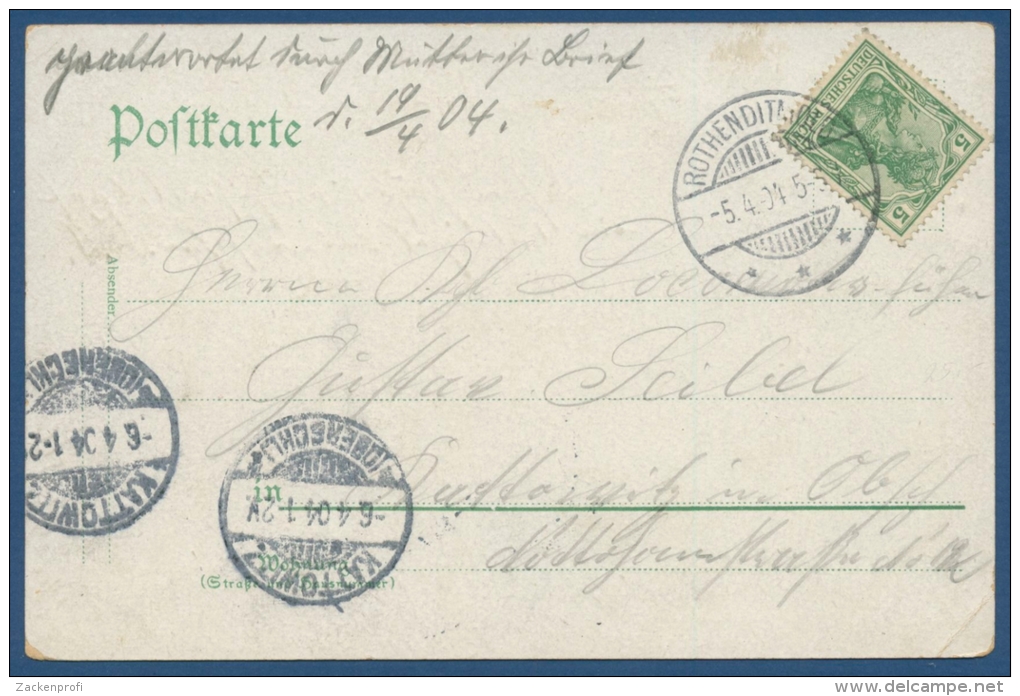 beantwortet durch Mutter ihr Brief
Postkarte d. 19/4 04.
ROTHENDITM
-5.4.04 5-
DEUTSCHES REICH
5 5
Absender.
Herrn
Gustav Seibel
in Kattowitz in Obschl
Wohnung
(Straße und Hausnummer)
KATTOWITZ (OBERSCHL)
-6.4.04 1-2
KATTOWITZ (OBERSCHL)
-6.4.04 1-2N
Zackenprofi